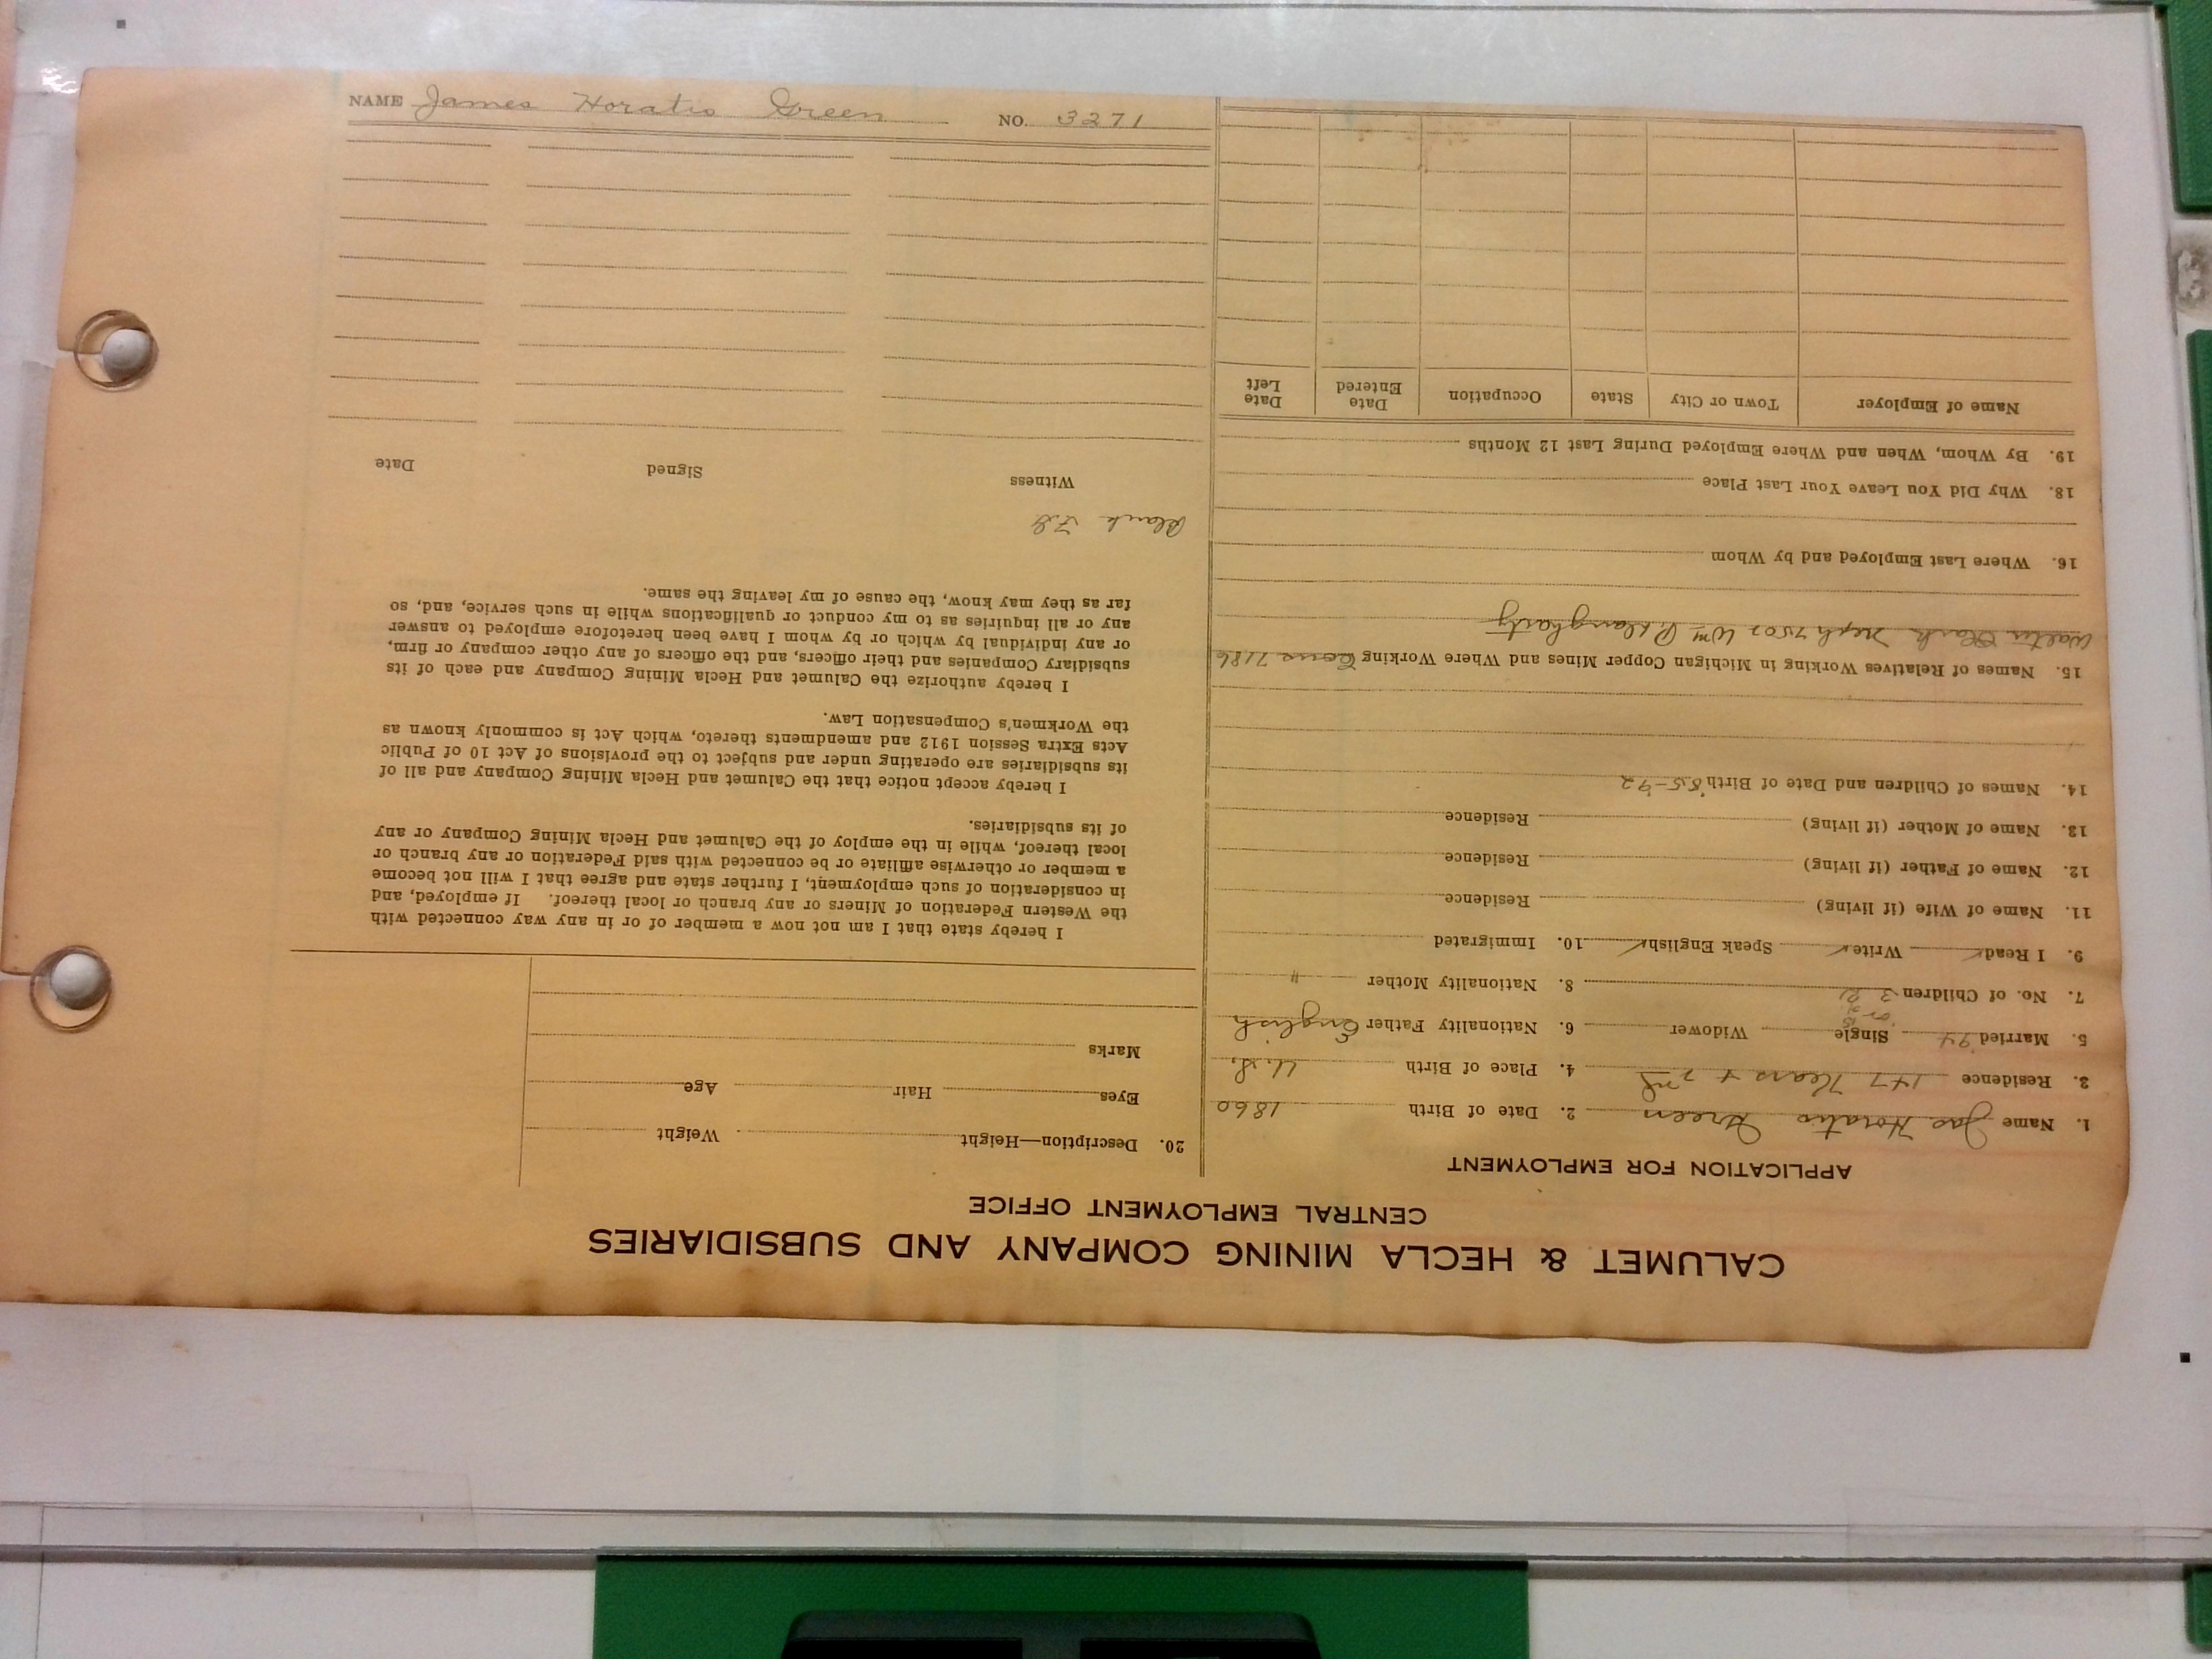 NAME James Horatio Green NO. 3271
CALUMET & HECLA MINING COMPANY AND SUBSIDIARIES
CENTRAL EMPLOYMENT OFFICE
APPLICATION FOR EMPLOYMENT
1. Name Jas Horatio Green 2. Date of Birth 1860
3. Residence 147 4. Place of Birth U.S.
5. Married '94 Single Widower 6. Nationality Father English
7. No. of Children 3 8. Nationality Mother "
9. I Read ✓ Write ✓ Speak English ✓ 10. Immigrated
11. Name of Wife (if living) Residence
12. Name of Father (if living) Residence
13. Name of Mother (if living) Residence
14. Names of Children and Date of Birth
15. Names of Relatives Working in Michigan Copper Mines and Where Working 7186
Walter Clark Neph 7507 Wm P.
16. Where Last Employed and by Whom
18. Why Did You Leave Your Last Place
19. By Whom, When and Where Employed During Last 12 Months
Name of Employer Town or City State Occupation Date Entered Date Left
20. Description—Height Weight
Eyes Hair Age
Marks
I hereby state that I am not now a member of or in any way connected with
the Western Federation of Miners or any branch or local thereof. If employed, and
in consideration of such employment, I further state and agree that I will not become
a member or otherwise affiliate or be connected with said Federation or any branch or
local thereof, while in the employ of the Calumet and Hecla Mining Company or any
of its subsidiaries.
I hereby accept notice that the Calumet and Hecla Mining Company and all of
its subsidiaries are operating under and subject to the provisions of Act 10 of Public
Acts Extra Session 1912 and amendments thereto, which Act is commonly known as
the Workmen's Compensation Law.
I hereby authorize the Calumet and Hecla Mining Company and each of its
subsidiary Companies and their officers, and the officers of any other company or firm,
or any individual by which or by whom I have been heretofore employed to answer
any or all inquiries as to my conduct or qualifications while in such service, and, so
far as they may know, the cause of my leaving the same.
Witness Signed Date